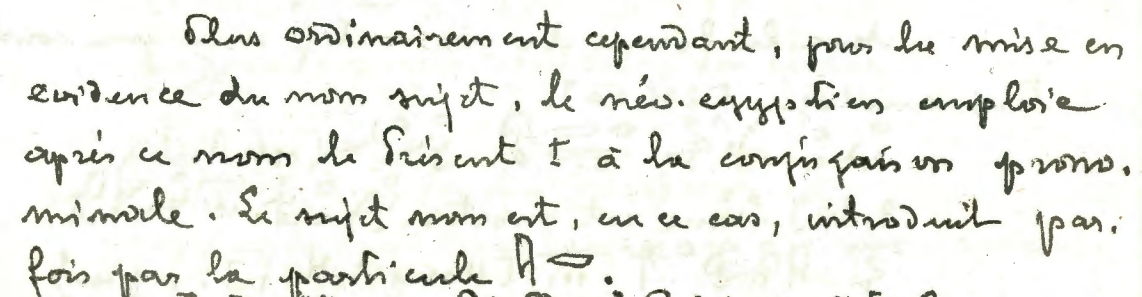 Plus ordinairement cependant, pour la mise en
evidence du nom sujet, le néo-egyptien emploie
après ce nom le Présent I à la conjugaison prono-
minale. Le sujet nom est, en ce cas, introduit par-
fois par la particule 𓇋𓂋.